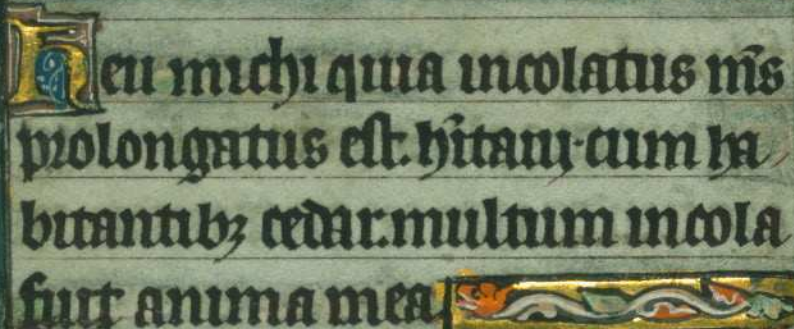 Heu michi quia incolatus m̄s
prolongatus est. h̄itaui·cum ha
bitantibꝫ cedar. multum incola
fuit anima mea.